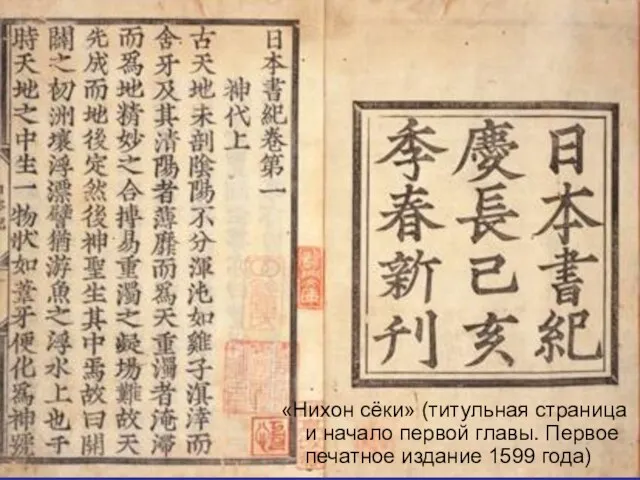 日本書紀
慶長己亥
季春新刊
日本書紀卷第一
神代上
古天地未剖陰陽不分渾沌如雞子溟涬而
含牙及其清陽者薄靡而爲天重濁者淹滯
而爲地精妙之合摶易重濁之凝場難故天
先成而地後定然後神聖生其中焉故曰開
闢之初洲壤浮漂譬猶游魚之浮水上也于
時天地之中生一物狀如葦牙便化爲神號
«Нихон сёки» (титульная страница
и начало первой главы. Первое
печатное издание 1599 года)